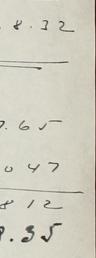 .8.32
.65
047
812
.35